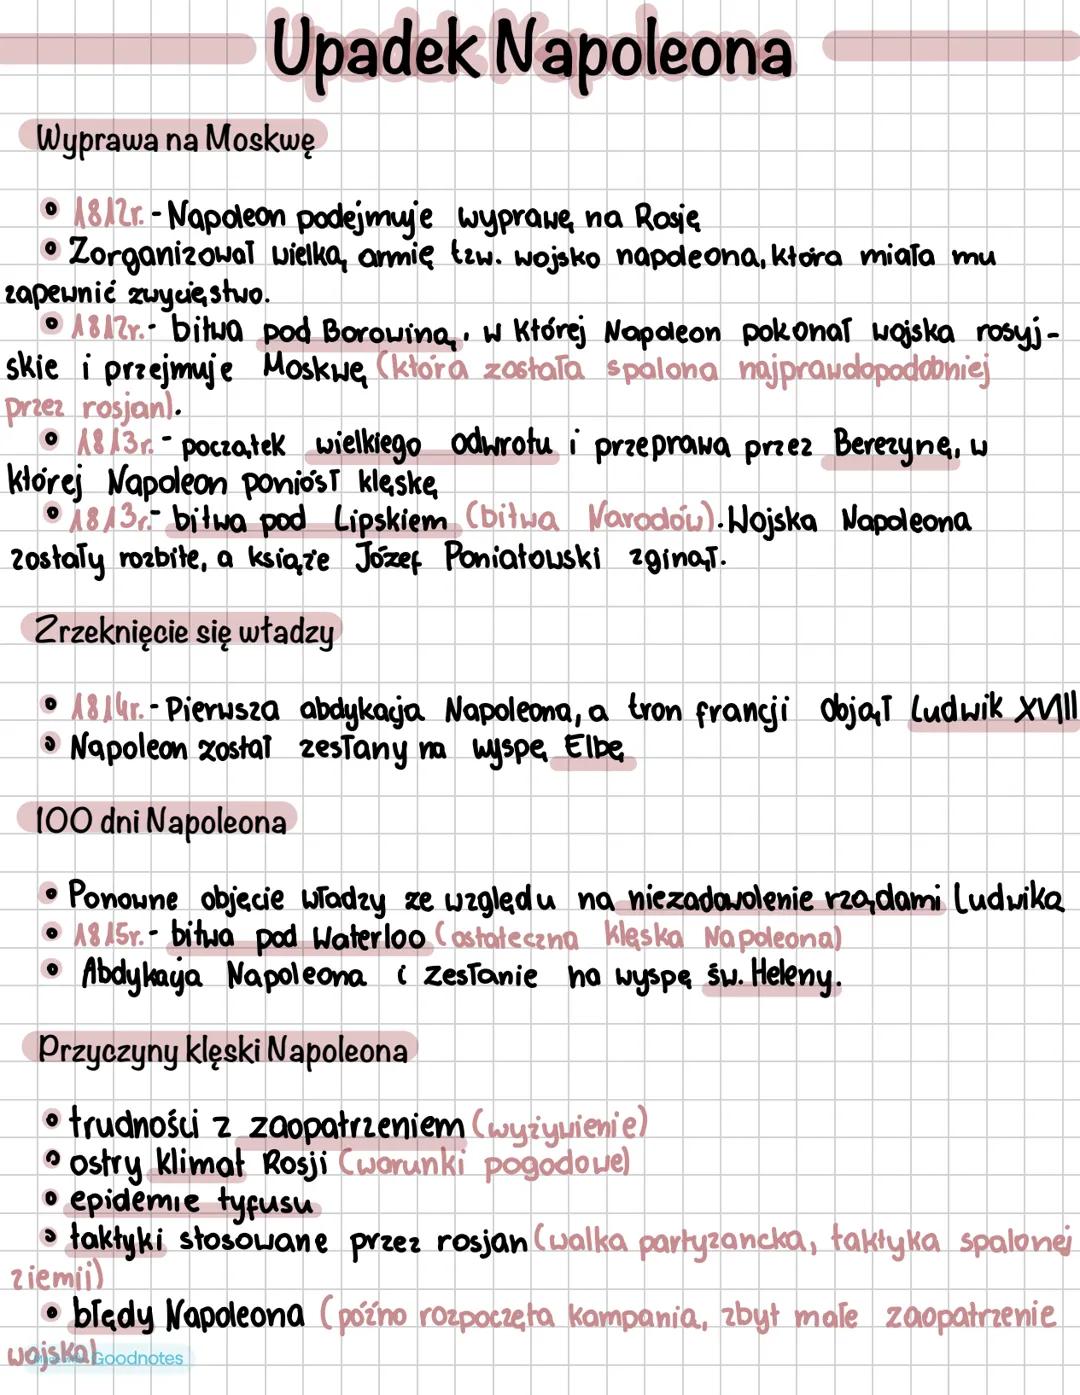 Upadek Napoleona
Wyprawa na Moskwę
• 1812r. - Napoleon podejmuje wyprawę na Rosję
• Zorganizował wielką armię tzw. wojsko napoleona, która miała mu
zapewnić zwycięstwo.
• 1812r. - bitwa pod Borowiną, w której Napoleon pokonał wojska rosyj-
skie i przejmuje Moskwę (która została spalona najprawdopodobniej
przez rosjan).
• 1813r. - początek wielkiego odwrotu i przeprawa przez Berezynę, w
której Napoleon poniósł klęskę
• 1813r. - bitwa pod Lipskiem (bitwa Narodów). Wojska Napoleona
zostały rozbite, a książe Józef Poniatowski zginął.
Zrzeknięcie się władzy
• 1814r. - Pierwsza abdykacja Napoleona, a tron francji objął Ludwik XVIII
• Napoleon został zesłany na wyspę Elbę
100 dni Napoleona
• Ponowne objęcie władzy ze względu na niezadowolenie rządami Ludwika
• 1815r. - bitwa pod Waterloo (ostateczna klęska Napoleona)
• Abdykacja Napoleona i zesłanie na wyspę św. Heleny.
Przyczyny klęski Napoleona
• trudności z zaopatrzeniem (wyżywienie)
• ostry klimat Rosji (warunki pogodowe)
• epidemie tyfusu
• taktyki stosowane przez rosjan (walka partyzancka, taktyka spalonej
ziemii)
• błędy Napoleona (późno rozpoczęta kampania, zbyt małe zaopatrzenie
wojska)
Goodnotes